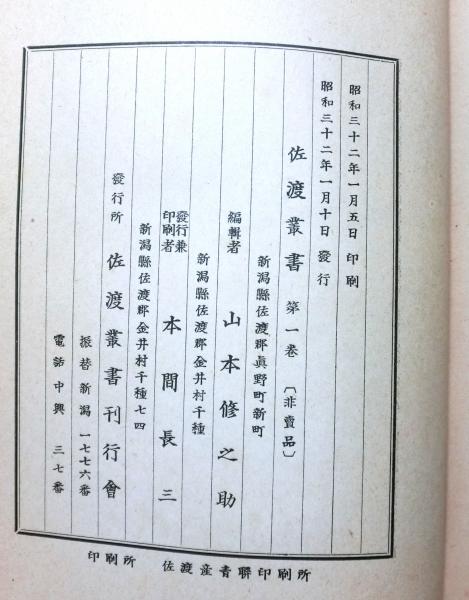 昭和三十二年一月五日 印刷
昭和三十二年一月十日 發行
佐渡叢書 第一卷 〔非賣品〕
新潟縣佐渡郡眞野町新町
編輯者 山本修之助
新潟縣佐渡郡金井村千種
發行兼印刷者 本間長三
新潟縣佐渡郡金井村千種七四
發行所 佐渡叢書刊行會
振替新潟 一七七六番
電話中興 三七番
印刷所 佐渡産青聯印刷所